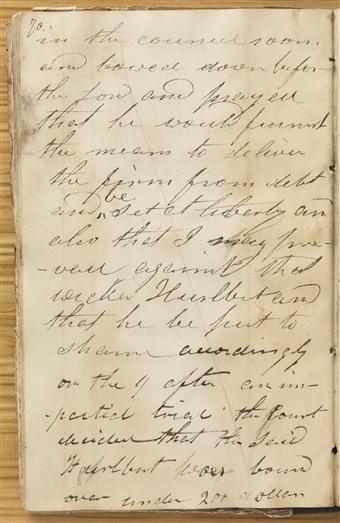 70.
in the councel room.
and bowed down before
the Lord and prayed
that he would furnish
the means to deliver
the firm from debt
and be set at liberty and
also that I may pre-
-vail against that
wicked Hurlbut and
that he be put to
shame accordingly
on the 9 after an im-
-partial trial the Court
decided that the said
Hurlbut was bound
over under 200 dollars